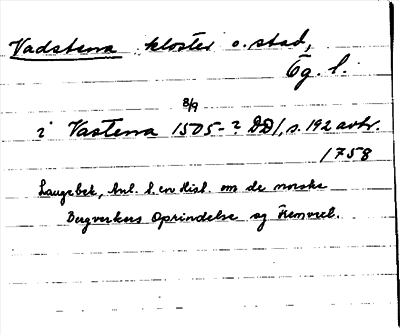 Vadstena kloster o. stad,
Eg. l.
8/9
i Vastena 1505-? DD1, s. 192 avtr.
1758
Langebek, Anl. t. en Hist. om de norske
Bergverkers Oprindelse og Fremvext.